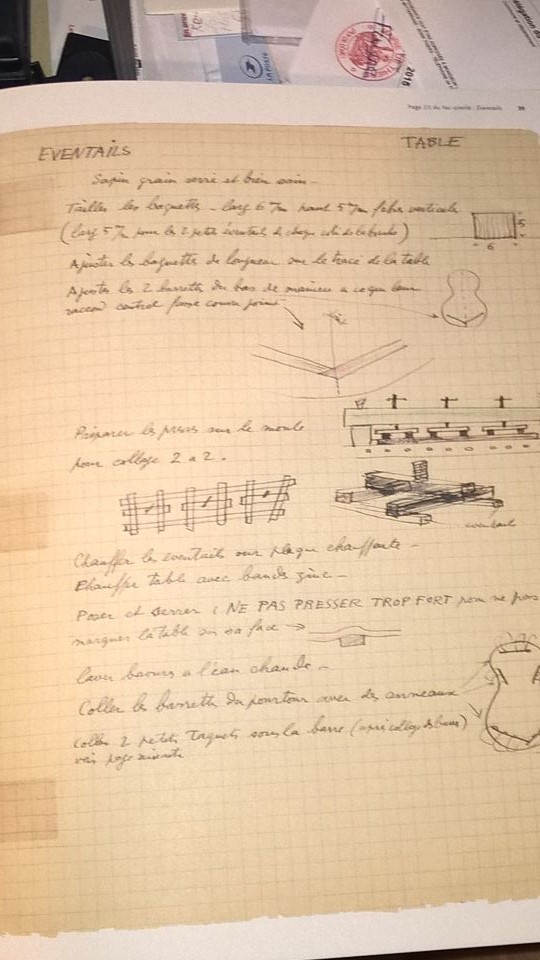 LA POSTE
2016
EVENTAILS
TABLE
Sapin grain serré et bien sain -
Tailler les baguettes - larg 6 m/m haut 5 m/m fibre verticale
(larg 5 m/m pour les 2 petits éventails de chaque coté de la bouche)
5
6
Ajuster les baguettes de longueur sur le tracé de la table
Ajuster les 2 barrettes du bas de manière a ce que leur
raccord central fasse comme joint
Préparer les presses sur le moule
pour collage 2 a 2.
eventails
Chauffer les eventails sur plaque chauffante -
Chauffer table avec bande zinc -
Poser et serrer (NE PAS PRESSER TROP FORT pour ne pas
marquer la table sur sa face →
laver bavures a l'eau chaude -
Coller les barrettes du pourtour avec des anneaux
Coller 2 petits Taquets sous la barre (après collage des barres)
voir page suivante